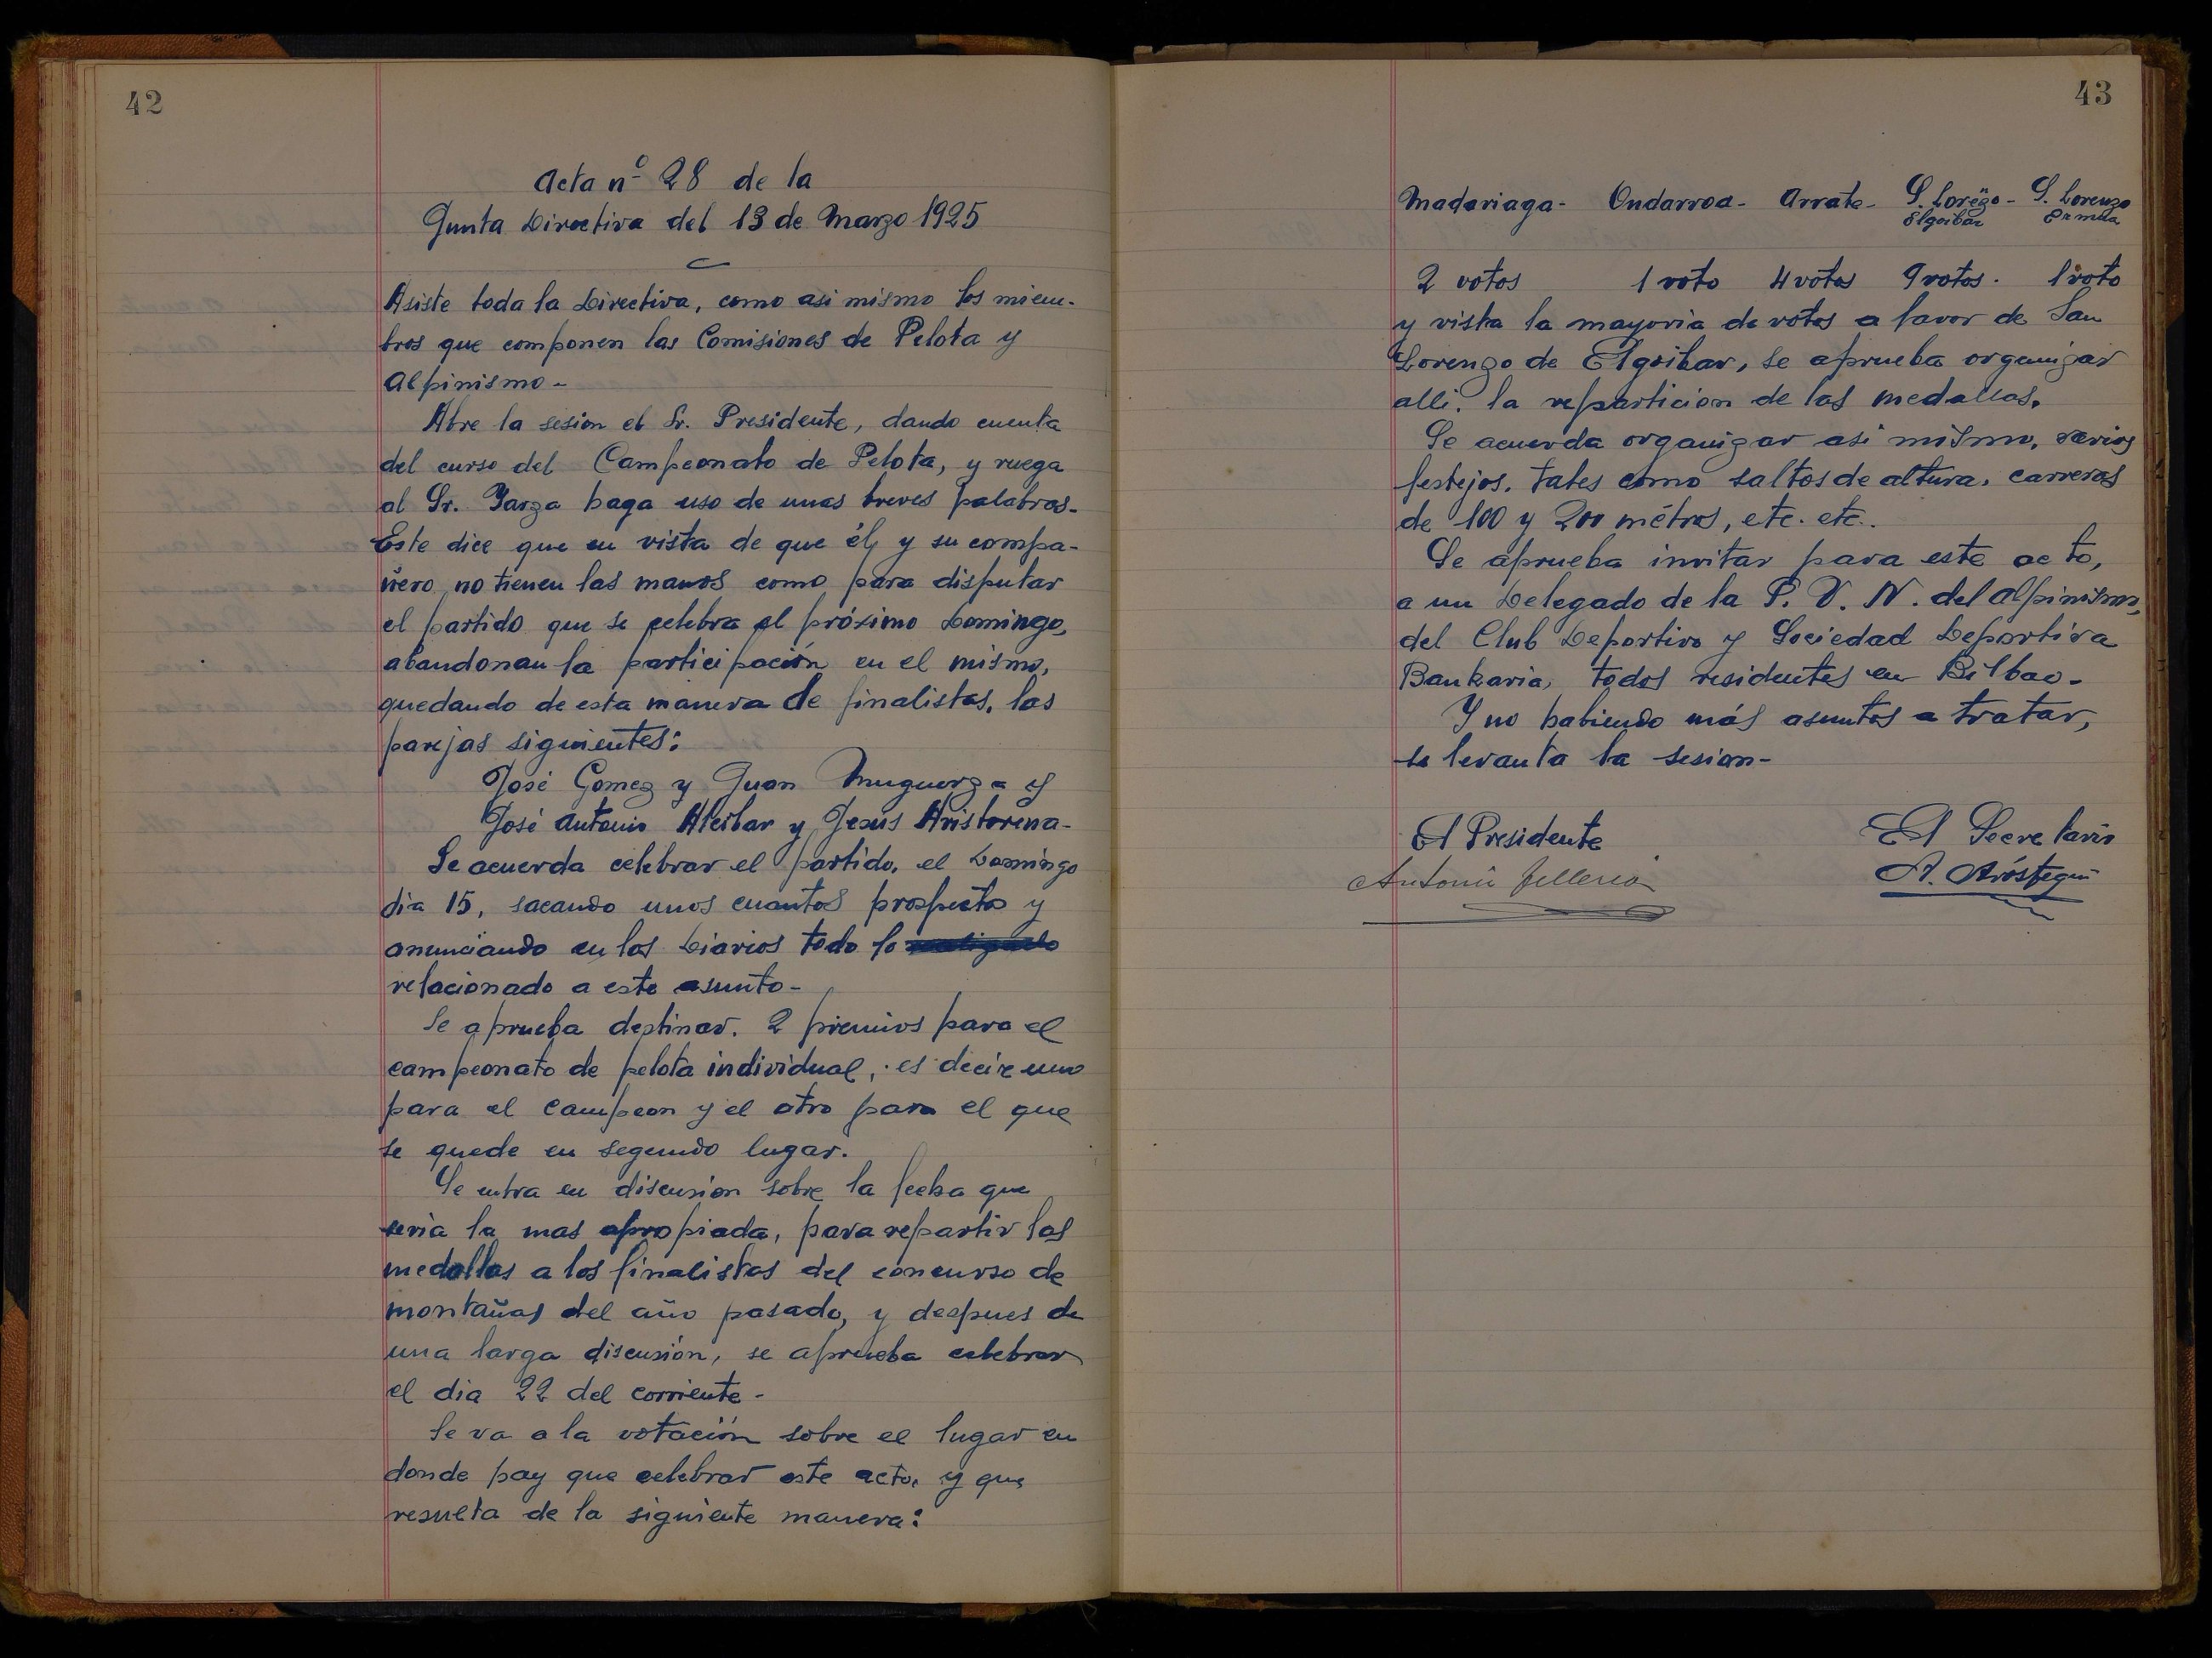 42
Acta nº 28 de la
Junta Directiva del 13 de Marzo 1925
Asiste toda la Directiva, como asi mismo los miem-
bros que componen las Comisiones de Pelota y
Alpinismo-
Abre la sesion el Sr. Presidente, dando cuenta
del curso del Campeonato de Pelota, y ruega
al Sr. Yarza haga uso de unas breves palabras-
Este dice que en vista de que él, y su compa-
ñero, no tienen las manos como para disputar
el partido que se celebra el próximo Domingo,
abandonan la participación en el mismo,
quedando de esta manera de finalistas, las
parejas siguientes:
José Gomez y Juan Muguerza y
José Antonio Alcibar y Jesús Aristorena-
Se acuerda celebrar el partido, el Domingo
dia 15, sacando unos cuantos prospectos y
anunciando en los Diarios todo lo
relacionado a este asunto-
Se aprueba destinar. 2 premios para el
campeonato de pelota individual, es decir uno
para el campeon y el otro para el que
se quede en segundo lugar.
Se entra en discusion sobre la fecha que
seria la mas apropiada, para repartir las
medallas a los finalistas del concurso de
montañas del año pasado, y despues de
una larga discusión, se aprueba celebrar
el dia 22 del corriente-
Se va a la votación sobre el lugar en
donde hay que celebrar este acto, y que
resulta de la siguiente manera:
43
Madariaga- Ondarroa- Arrate- S. Lorezo- S. Lorenzo
Elgoibar Ermua
2 votos 1 voto 4 votos 9 votos. 1 voto
y vista la mayoria de votos a favor de San
Lorenzo de Elgoibar, se aprueba organizar
alli. la reparticion de las medallas.
Se acuerda organizar asi mismo, varios
festejos. tales como saltos de altura, carreras
de 100 y 200 métros, etc. etc..
Se aprueba invitar para este acto,
a un Delegado de la P. V. N. del Alpinismo,
del Club Deportivo y Sociedad Deportiva
Bankaria, todos residentes en Bilbao-
Y no habiendo más asuntos a tratar,
se levanta la sesion-
El Presidente El Secretario
Antonio Telleria A. Aróstegui